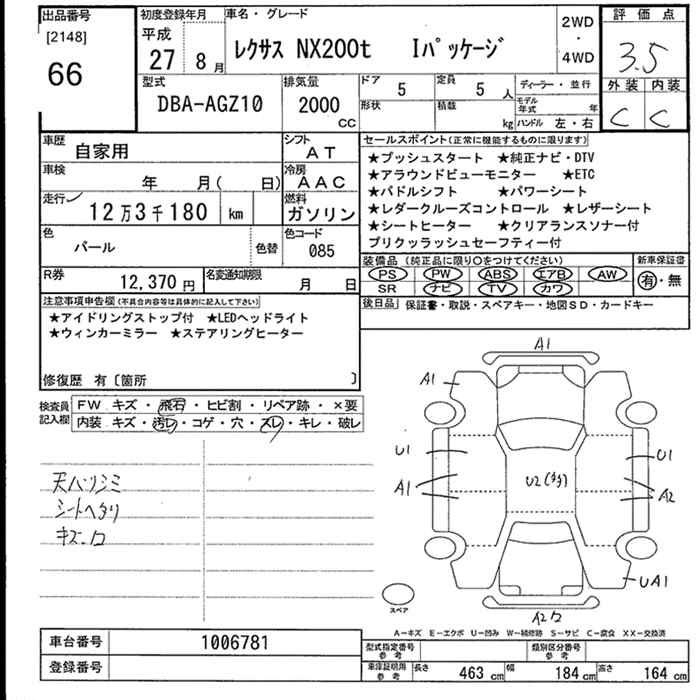 出品番号 初度登録年月 車名・グレード 2WD 評価点
[2148] 平成 ・ 3.5
66 27 8月 レクサス NX200t Iパッケージ 4WD
外装 内装
C C
型式 排気量 ドア 5 定員 5人 ディーラー・並行
DBA-AGZ10 2000 CC 形状 積載 kg モデル年式 年
ハンドル 左・右
車歴 自家用 シフト AT セールスポイント(正常に機能するものに限ります)
★プッシュスタート ★純正ナビ・DTV
車検 年 月( 日) 冷房 AAC ★アラウンドビューモニター ★ETC
★パドルシフト ★パワーシート
走行 12万3千180 km 燃料 ガソリン ★レダークルーズコントロール ★レザーシート
★シートヒーター ★クリアランスソナー付
色 パール 色替 色コード 085 プリクラッラッシュセーフティー付
装備品(純正品に限り○をつけてください) 新車保証書
R券 12,370円 名変通知期限 月 日 PS PW ABS エアB AW 有・無
SR ナビ TV カワ
注意事項申告欄(不具合内容等は具体的に記入して下さい) 後日品 保証書・取説・スペアキー・地図SD・カードキー
★アイドリングストップ付 ★LEDヘッドライト
★ウィンカーミラー ★ステアリングヒーター
修復歴 有〔箇所 〕
検査員記入欄 FW キズ・飛石・ヒビ割・リペア跡・×要
内装 キズ・汚レ・コゲ・穴・ズレ・キレ・破レ
A1
A1
U1 U1
U2
A1 A2
天ハリシミ
シートヘタリ
キズ
UA1
スペア
A2
A-キズ E-エクボ U-凹み W-補修跡 S-サビ C-腐食 XX-交換済
車台番号 1006781 型式指定番号 参考 類別区分番号 参考
登録番号 車庫証明用 参考 長さ 463 cm 幅 184 cm 高さ 164 cm